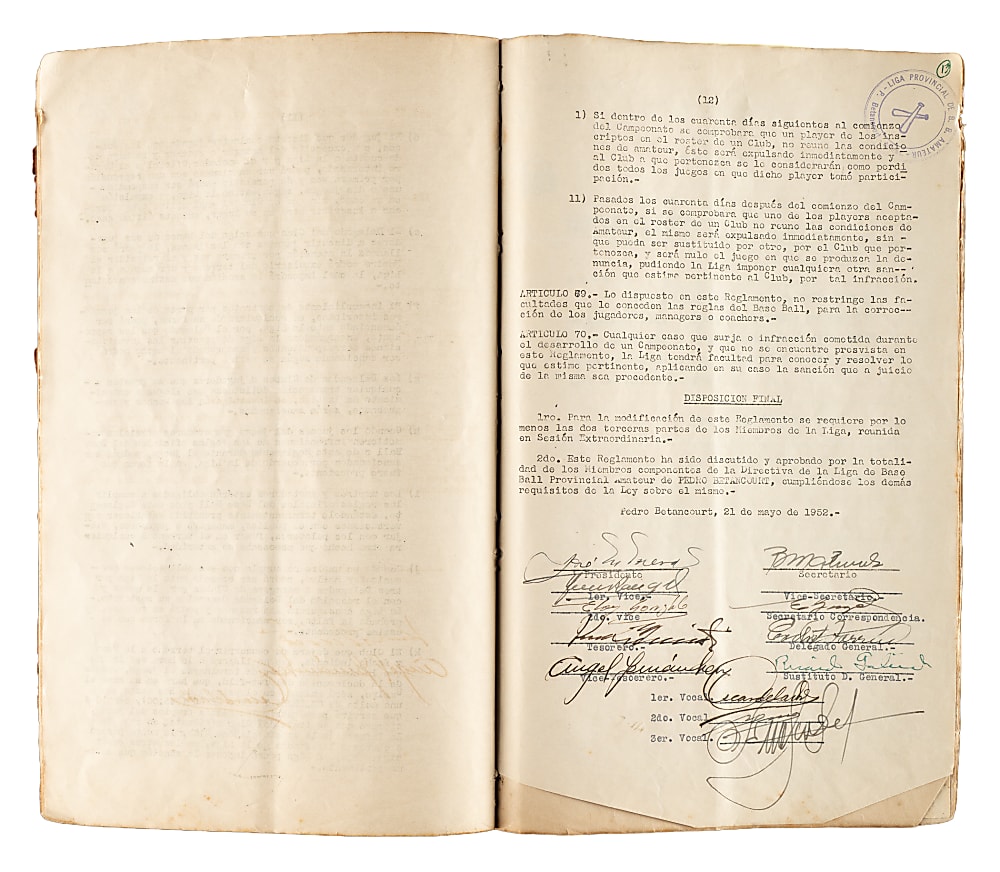 (12)
1) Si dentro de los cuarenta días siguientes al comienzo
del Campeonato se comprobara que un player de los ins-
criptos en el roster de un Club, no reune las condicio
nes de amateur, éste será expulsado inmediatamente y
al Club a que pertenezca se le considerarán como perdi
dos todos los juegos en que dicho player tomó partici-
pación.-
11) Pasados los cuarenta días después del comienzo del Cam-
peonato, si se comprobara que uno de los players acepta-
dos en el roster de un Club no reune las condiciones de
Amateur, el mismo será expulsado inmediatamente, sin -
que pueda ser sustituido por otro, por el Club que per-
tenezca, y será nulo el juego en que se produzca la de-
nuncia, pudiendo la Liga imponer cualquiera otra san--
ción que estime pertinente al Club, por tal infracción.
ARTICULO 69.- Lo dispuesto en este Reglamento, no restringe las fa-
cultades que le conceden las reglas del Base Ball, para la correc--
ción de los jugadores, managers o coachers.-
ARTICULO 70.- Cualquier caso que surja o infracción cometida durante
el desarrollo de un Campeonato, y que no se encuentre prevista en
este Reglamento, la Liga tendrá facultad para conocer y resolver lo
que estime pertinente, aplicando en su caso la sanción que a juicio
de la misma sea procedente.-
DISPOSICION FINAL
1ro. Para la modificación de este Reglamento se requiere por lo
menos las dos terceras partes de los Miembros de la Liga, reunida
en Sesión Extraordinaria.-
2do. Este Reglamento ha sido discutido y aprobado por la totali-
dad de los Miembros componentes de la Directiva de la Liga de Base
Ball Provincial Amateur de PEDRO BETANCOURT, cumpliéndose los demás
requisitos de la Ley sobre el mismo.-
Pedro Betancourt, 21 de mayo de 1952.-
Presidente
Secretario
1er. Vice.-
Vice-Secretario.-
Eloy
2do. Vice
Secretario Correspondencia.
Tesorero.-
Delegado General.-
Angel
Ricardo
Vice-Tesorero.-
Sustituto D. General.-
1er. Vocal
2do. Vocal
3er. Vocal.
LIGA PROVINCIAL DE B. B. AMATEUR